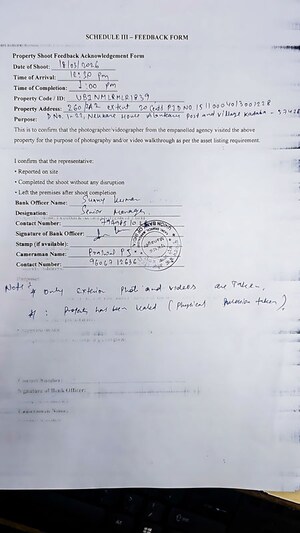 SCHEDULE III – FEEDBACK FORM
Property Shoot Feedback Acknowledgement Form
Date of Shoot: 18/05/2026
Time of Arrival: 12:30 pm
Time of Completion: 1:00 pm
Property Code / ID: UBINMLRMLR1839
Property Address: 260/2A2 Extent 20 Cents PID NO. 151100401300
Purpose: D No. 1-21, House Post and Village
This is to confirm that the photographer/videographer from the empanelled agency visited the above
property for the purpose of photography and/or video walkthrough as per the asset listing requirement.
I confirm that the representative:
• Reported on site
• Completed the shoot without any disruption
• Left the premises after shoot completion
Bank Officer Name: Sunny Kumar
Designation: Senior Manager
Contact Number:
Signature of Bank Officer:
Stamp (if available):
Cameraman Name: Prashant P S
Contact Number: 9606712636
Note: * Only Exterior Photo and videos are Taken.
* : Property has been sealed (Physical Possession taken)
Contact Number:
Signature of Bank Officer:
Cameraman Name: